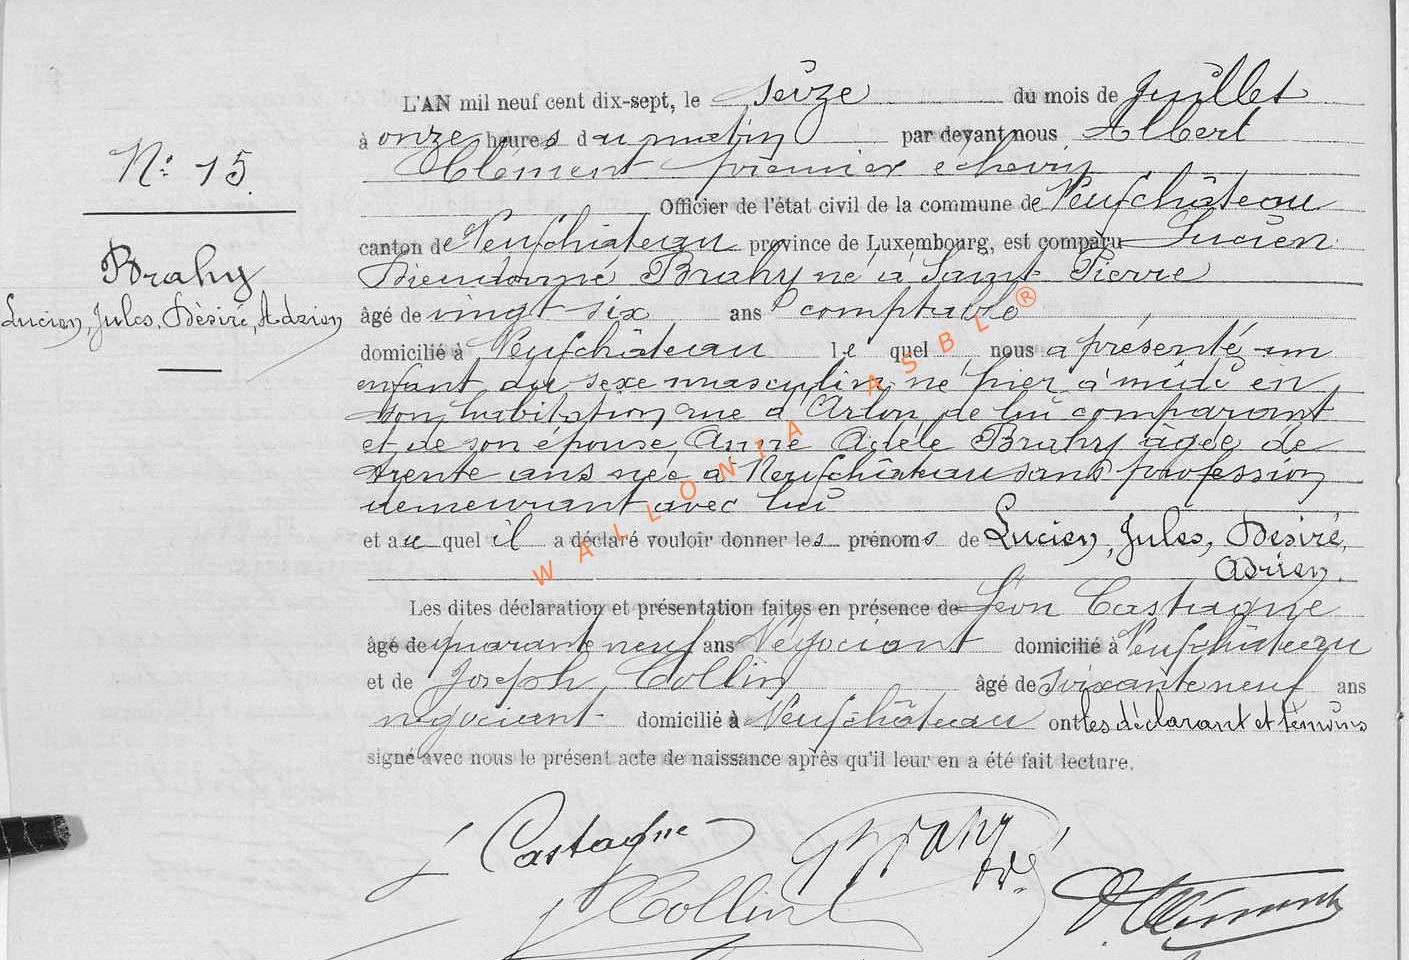 N° 15.
Brahy
Lucien, Jules, Désiré, Adrien
L'AN mil neuf cent dix-sept, le seize du mois de Juillet
à onze heures du matin par devant nous Albert
Clément premier échevin
Officier de l'état civil de la commune de Neufchâteau
canton de Neufchâteau province de Luxembourg, est comparu Lucien
Dieudonné Brahy né à Saint Pierre
âgé de vingt six ans comptable
domicilié à Neufchâteau lequel nous a présenté un
enfant du sexe masculin né hier à midi en
son habitation rue d'Arlon, de lui comparant
et de son épouse, Anne Adèle Brahy âgée de
trente ans née à Neufchâteau sans profession
demeurant avec lui
et auquel il a déclaré vouloir donner les prénoms de Lucien, Jules, Désiré,
Adrien.
Les dites déclaration et présentation faites en présence de Léon Castagne
âgé de quarante neuf ans Négociant domicilié à Neufchâteau
et de Joseph Collin âgé de soixante neuf ans
négociant domicilié à Neufchâteau ont les déclarant et témoins
signé avec nous le présent acte de naissance après qu'il leur en a été fait lecture.
Castagne Brahy
J Collin A. Clément
WALLONIA ASBL®